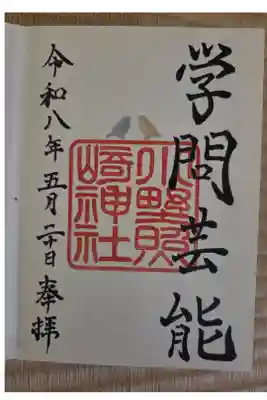 学問芸能
小野照
崎神社
令和八年五月二十日奉拝